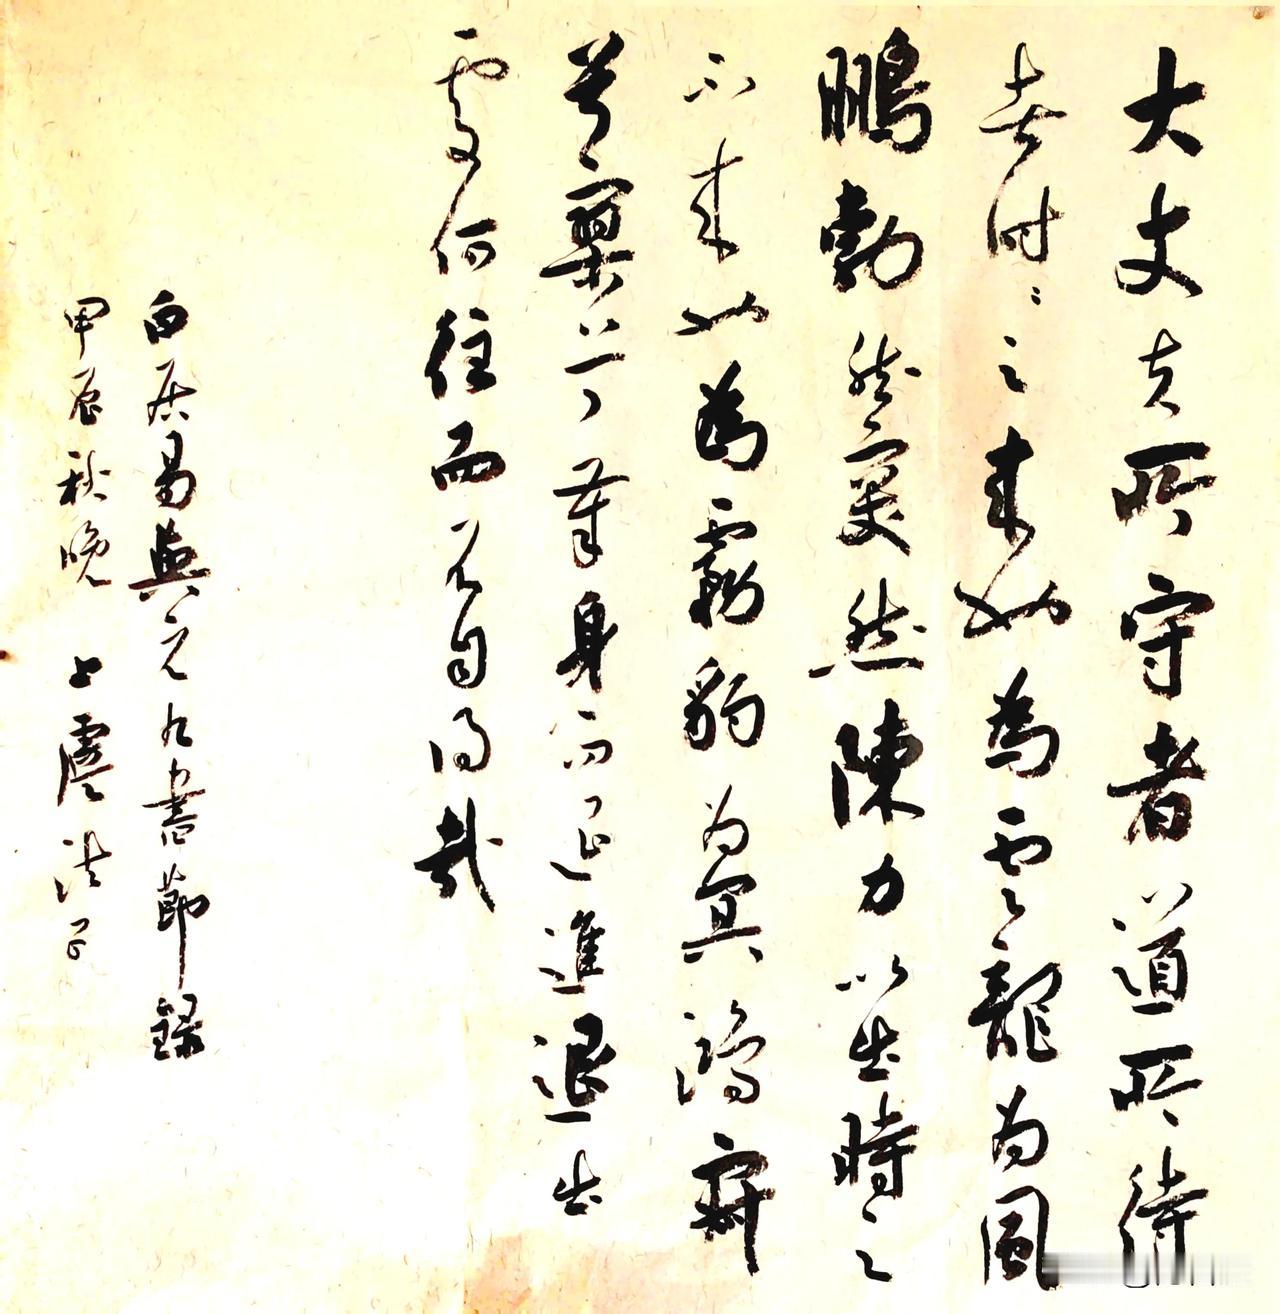 大丈夫所守者道所待
者时々之来也為雲龍為風
鵬勃然突然陳力以出時之
不来也為霧豹為冥鴻寂
兮寥兮奉身而退進退出
處何往而不自得哉
白居易與元九書節録
甲辰秋晚 上虞